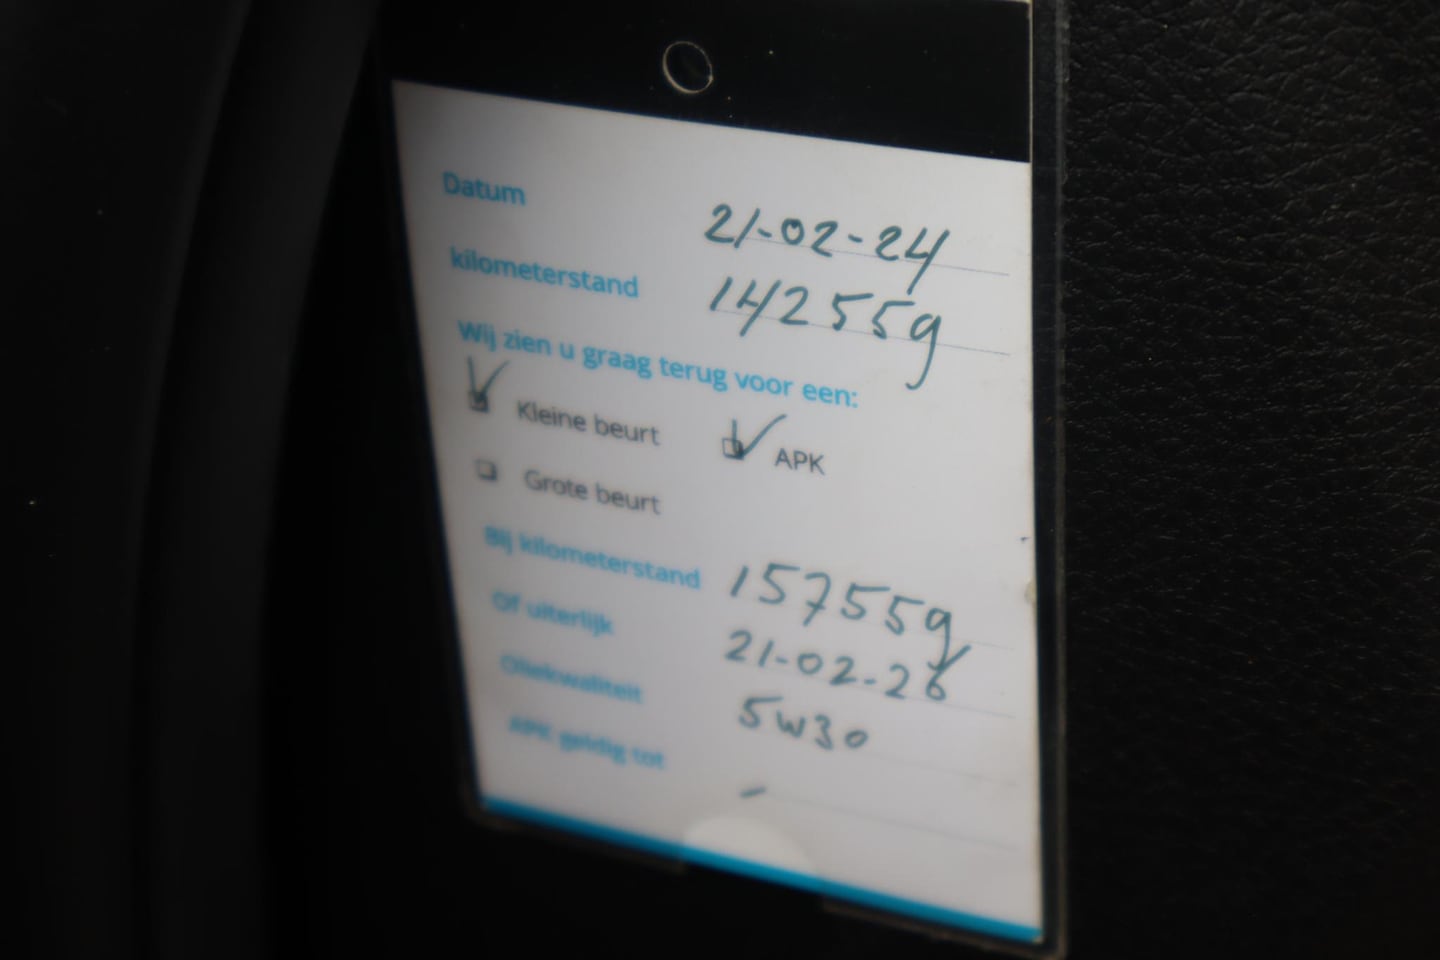 Datum 21-02-24
kilometerstand 142559
Wij zien u graag terug voor een:
Kleine beurt APK
Grote beurt
Bij kilometerstand 157559
Of uiterlijk 21-02-26
Oliekwaliteit 5W30
APK geldig tot -